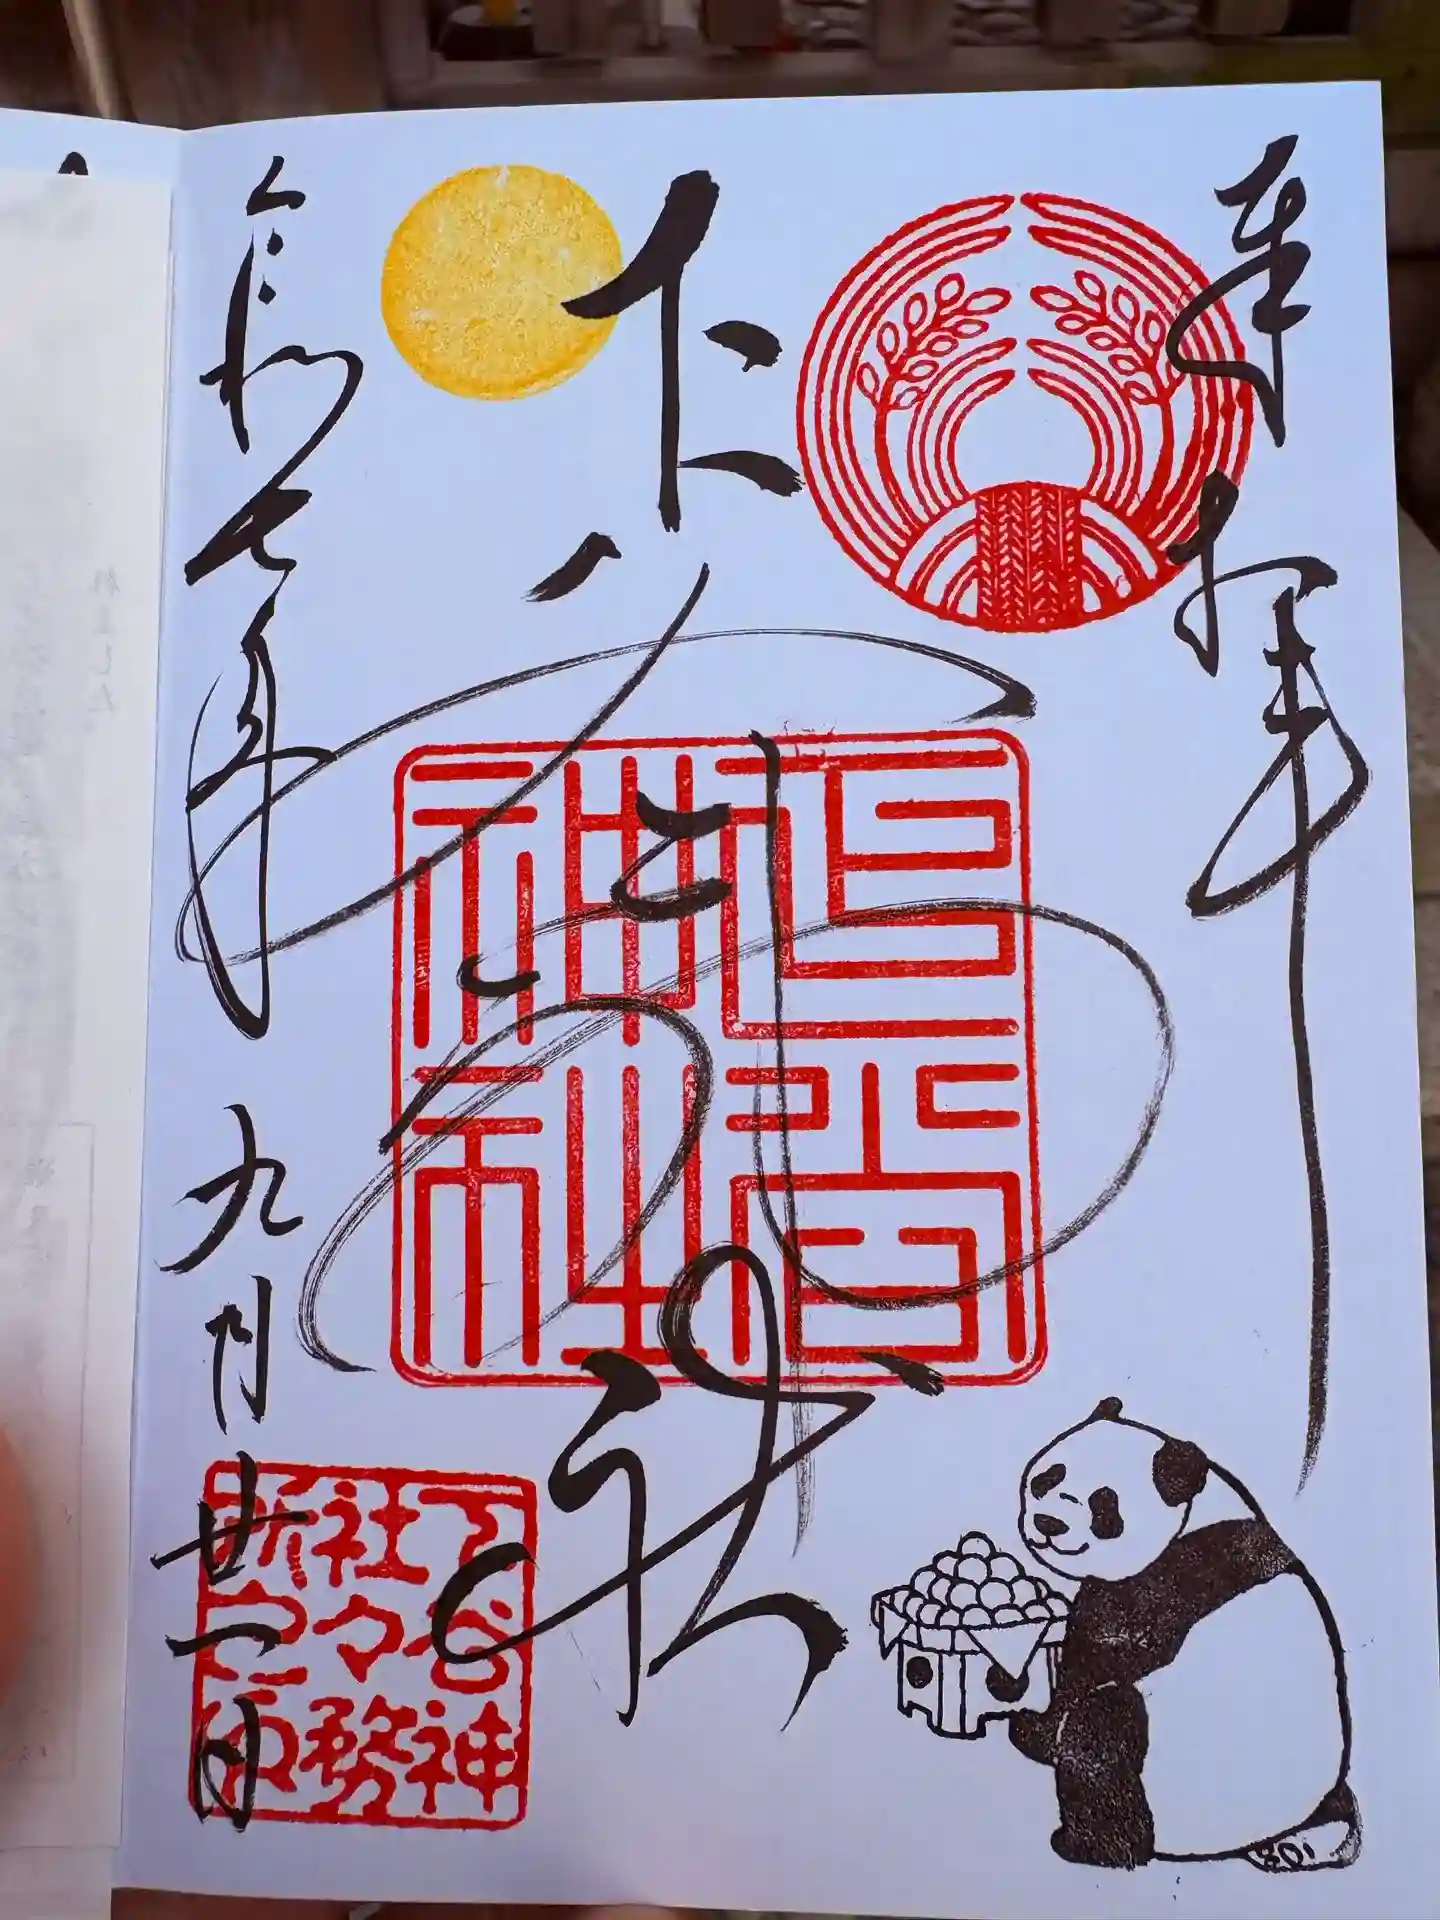 奉拝
下谷神社
令和七年九月廿一日
下谷神
社々務
所之印